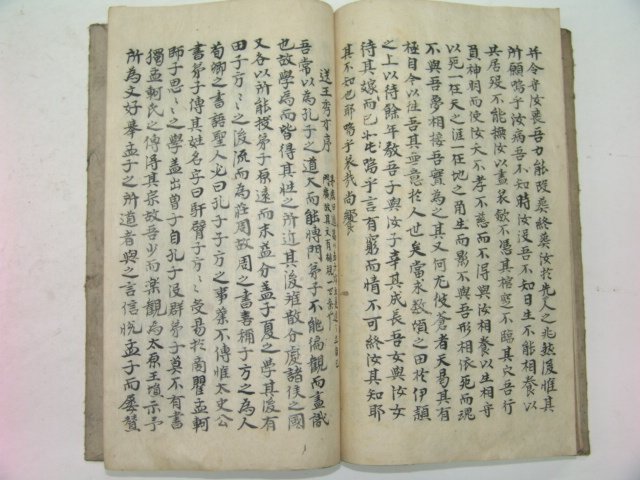 并令守汝喪吾力能改葬終葬汝於先人之兆然後惟其
所願嗚乎汝病吾不知時汝沒吾不知日生不能相養以
共居歿不能撫汝以盡哀斂不憑其棺窆不臨其穴吾行
負神明而使汝夭不孝不慈而不得與汝相養以生相守
以死一在天之涯一在地之角生而影不與吾形相依死而魂
不與吾夢相接吾實為之其又何尤彼蒼者天曷其有
極自今以往吾其無意於人世矣當求數頃之田於伊潁
之上以待餘年敎吾子與汝子幸其成長吾女與汝女
待其嫁而已如此嗚乎言有窮而情不可終汝其知耶
其不知也耶嗚乎哀哉尚饗
送王秀才序
吾常以為孔子之道大而能博門弟子不能徧觀而盡識
也故學焉而皆得其性之所近其後離散分處諸侯之國
又各以所能授弟子原遠而末益分盖子夏之學其後有
田子方〻〻之後流而為莊周故周之書喜稱子方之為人
荀卿之書語聖人必曰孔子子弓子弓之事業不傳惟太史公
書弟子傳其姓名字曰馯臂子弓〻〻受易於商瞿孟軻
師子思〻〻之學盖出曾子自孔子沒群弟子莫不有書
獨孟軻氏之傳得其宗故吾少而樂觀焉太原王塤示予
所為文好擧孟子之所道者與之言信悅孟子而屢贊